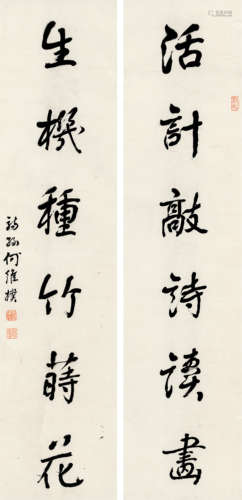 活計敲詩讀畫
生機種竹蒔花
詩孫何維樸